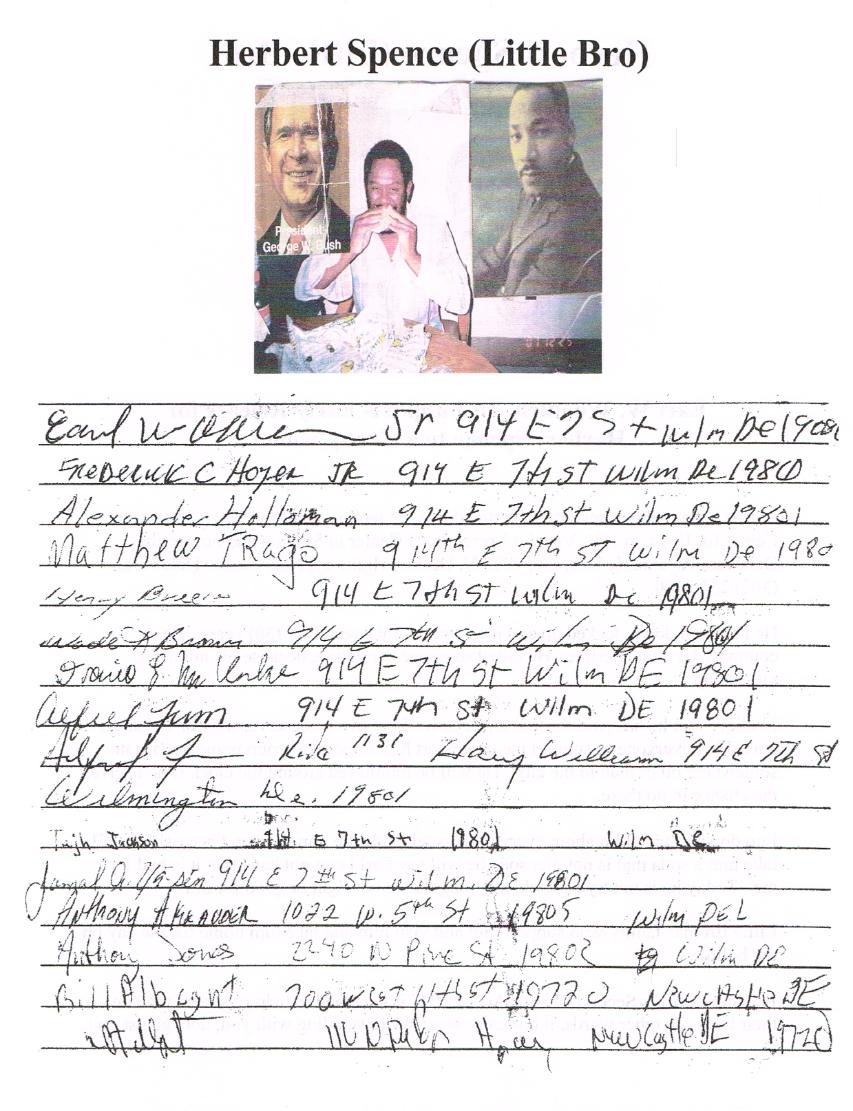 Herbert Spence (Little Bro)
President
George W. Bush
Earl W Jr 914 E 7 St Wilm De
FREDERICK C Hoyer JR 914 E 7th st Wilm De 1980
Alexander Holloman 914 E 7th st Wilm De 19801
Matthew TRago 914th E 7th ST Wilm De 1980
Henry 914 E 7th St Wilm De 19801
Wade A Brown 914 E 7th St Wilm De 19801
914 E 7th St Wilm DE 19801
Alfred 914 E 7th St Wilm DE 19801
Alfred 1131 Harry William 914 E 7th St
Wilmington De. 19801
Tajh Jackson E 7th St 19801 Wilm De
Jamal A. 914 E 7th St Wilm. DE 19801
ANTHONY 1022 W. 5th St 19805 Wilm DEL
Anthony Jones 2240 N Pine St 19802 Wilm DE
Bill 700 West St 19720 NewCastle DE
NewCastle DE 19720